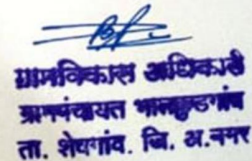 ग्रामविकास अधिकारी
ग्रामपंचायत भातकुडगांव
ता. शेवगांव. जि. अ.नगर